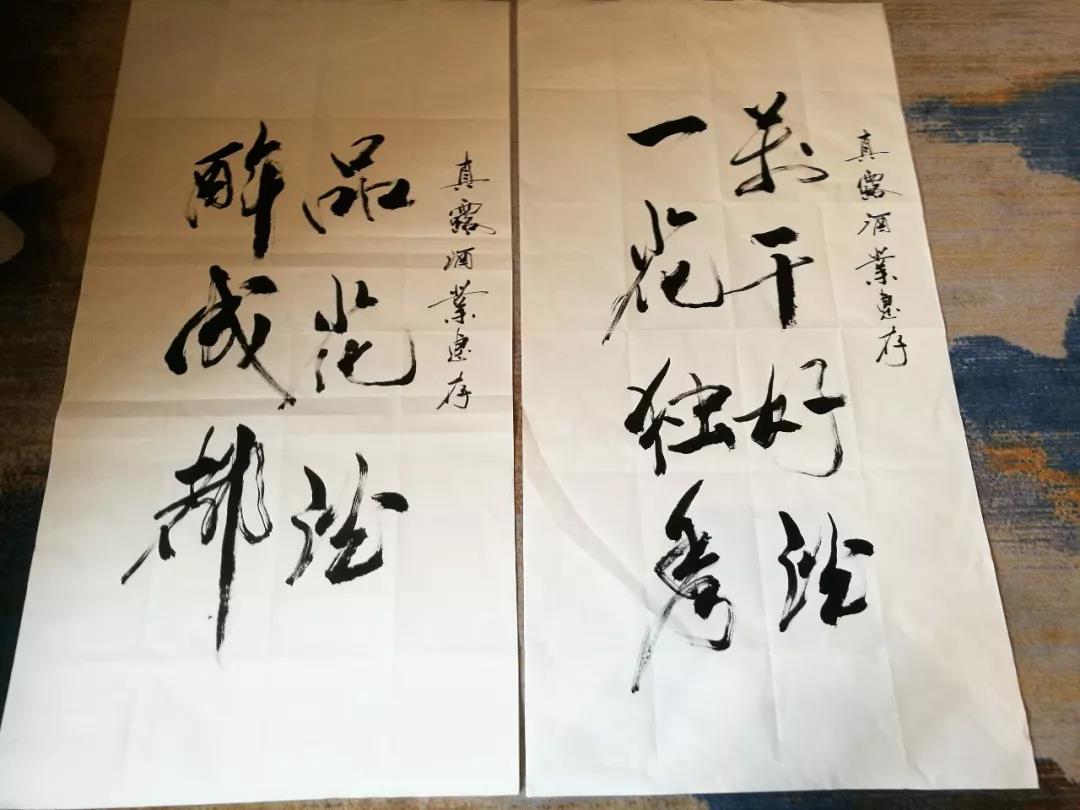 真露酒業惠存
萬千好酒
一花独秀
真露酒業惠存
品花酒
醉成都